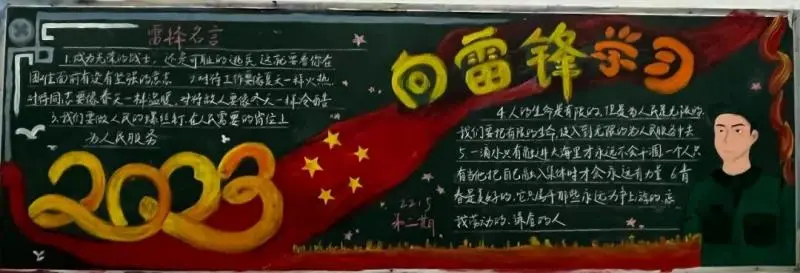 向雷锋学习
雷锋名言
1.成为光荣的战士,还是可耻的逃兵,这就要看你在
困难面前有没有坚强的意志 2.对待工作要像夏天一样火热
对待同志要像春天一样温暖,对待敌人要像冬天一样
3.我们要做人民的螺丝钉,在人民需要的岗位上
为人民服务
2023
2215
第二期
4.人的生命是有限的,但是为人民是无限的,
我们要把有限的生命,投入到无限的为人民服务中去
5.一滴水只有放进大海里才永远不会干涸,一个人只
有当他把自己融入集体时才会永远有力量 6.青
春是美好的,它只属于那些永远力争上游的,忘
我劳动的,谦虚的人